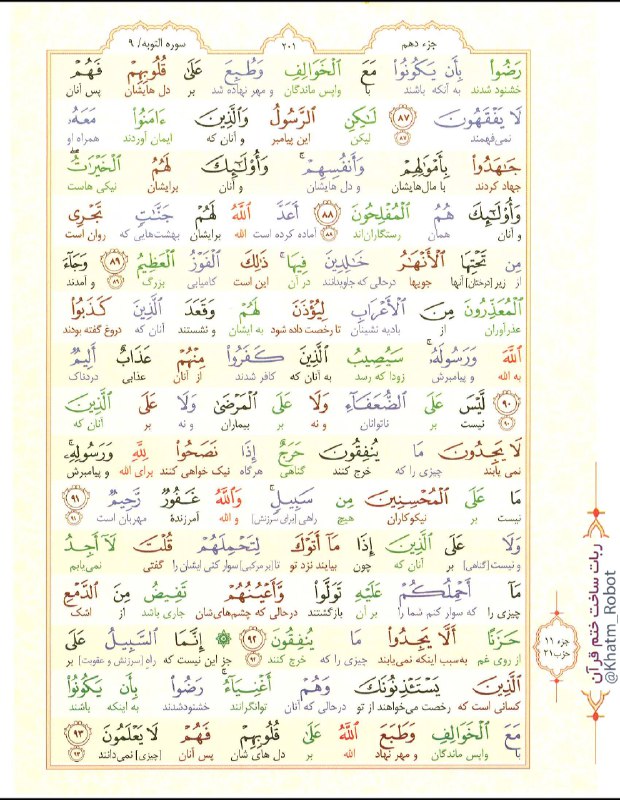 جزء دهم
۲۰۱
سوره التوبه/ ۹
رَضُوا۟ بِأَن يَكُونُوا۟ مَعَ ٱلْخَوَالِفِ وَطُبِعَ عَلَىٰ قُلُوبِهِمْ فَهُمْ
خشنود شدند به آنکه باشند با واپس ماندگان و مهر نهاده شد بر دل هایشان پس آنان
لَا يَفْقَهُونَ ۸۷ لَـٰكِنِ ٱلرَّسُولُ وَٱلَّذِينَ ءَامَنُوا۟ مَعَهُۥ
نمی‌فهمند ۸۷ لیکن این پیامبر و آنان که ایمان آوردند همراه او
جَـٰهَدُوا۟ بِأَمْوَٰلِهِمْ وَأَنفُسِهِمْ ۚ وَأُو۟لَـٰٓئِكَ لَهُمُ ٱلْخَيْرَٰتُ ۖ
جهاد کردند با مال‌هایشان و دل هایشان و آنان برایشان نیکی هاست
وَأُو۟لَـٰٓئِكَ هُمُ ٱلْمُفْلِحُونَ ۸۸ أَعَدَّ ٱللَّهُ لَهُمْ جَنَّـٰتٍ تَجْرِى
و آنان همان رستگاران‌اند ۸۸ آماده کرده است الله برایشان بهشت‌هایی که روان است
مِن تَحْتِهَا ٱلْأَنْهَـٰرُ خَـٰلِدِينَ فِيهَا ۚ ذَٰلِكَ ٱلْفَوْزُ ٱلْعَظِيمُ ۸۹ وَجَآءَ
از زیر [درختان] آنها جویها درحالی که جاویدانند در آن این است کامیابی بزرگ ۸۹ و آمدند
ٱلْمُعَذِّرُونَ مِنَ ٱلْأَعْرَابِ لِيُؤْذَنَ لَهُمْ وَقَعَدَ ٱلَّذِينَ كَذَبُوا۟
عذرآوران از بادیه نشینان تا رخصت داده شود به ایشان و نشستند آنان که دروغ گفته بودند
ٱللَّهَ وَرَسُولَهُۥ ۚ سَيُصِيبُ ٱلَّذِينَ كَفَرُوا۟ مِنْهُمْ عَذَابٌ أَلِيمٌ
به الله و پیامبرش زودا که رسد به آنان که کافر شدند از آنان عذابی دردناک
۹۰ لَّيْسَ عَلَى ٱلضُّعَفَآءِ وَلَا عَلَى ٱلْمَرْضَىٰ وَلَا عَلَى ٱلَّذِينَ
۹۰ نیست بر ناتوانان و نه بر بیماران و نه بر آنان که
لَا يَجِدُونَ مَا يُنفِقُونَ حَرَجٌ إِذَا نَصَحُوا۟ لِلَّهِ وَرَسُولِهِۦ ۚ
نمی یابند چیزی را که خرج کنند گناهی هرگاه نیک خواهی کنند برای الله و پیامبرش
مَا عَلَى ٱلْمُحْسِنِينَ مِن سَبِيلٍ ۚ وَٱللَّهُ غَفُورٌ رَّحِيمٌ ۹۱
نیست بر نیکوکاران هیچ راهی [برای سرزنش] و الله آمرزنده مهربان است ۹۱
وَلَا عَلَى ٱلَّذِينَ إِذَا مَآ أَتَوْكَ لِتَحْمِلَهُمْ قُلْتَ لَآ أَجِدُ
و نیست [گناهی] بر آنان که چون بیایند نزد تو تا [بر مرکبی] سوار کنی ایشان را گفتی نمی‌یابم
مَآ أَحْمِلُكُمْ عَلَيْهِ تَوَلَّوا۟ وَّأَعْيُنُهُمْ تَفِيضُ مِنَ ٱلدَّمْعِ
چیزی را که سوار کنم شما را بر آن بازگشتند درحالی که چشم‌های‌شان جاری باشد از اشک
حَزَنًا أَلَّا يَجِدُوا۟ مَا يُنفِقُونَ ۹۲ ۞ إِنَّمَا ٱلسَّبِيلُ عَلَى
از روی غم به‌سبب اینکه نمی‌یابند چیزی را که خرج کنند ۹۲ جز این نیست که راه [سرزنش و عقوبت] بر
ٱلَّذِينَ يَسْتَـْٔذِنُونَكَ وَهُمْ أَغْنِيَآءُ ۚ رَضُوا۟ بِأَن يَكُونُوا۟
کسانی است که رخصت می‌خواهند از تو درحالی که آنان توانگرانند خشنودشدند به اینکه باشند
مَعَ ٱلْخَوَالِفِ وَطَبَعَ ٱللَّهُ عَلَىٰ قُلُوبِهِمْ فَهُمْ لَا يَعْلَمُونَ ۹۳
با واپس ماندگان و مهر نهاد الله بر دل های شان پس آنان [چیزی] نمی‌دانند ۹۳
جزء ۱۱
حزب ۲۱
ربات ساخت ختم قرآن
@Khatm_Robot